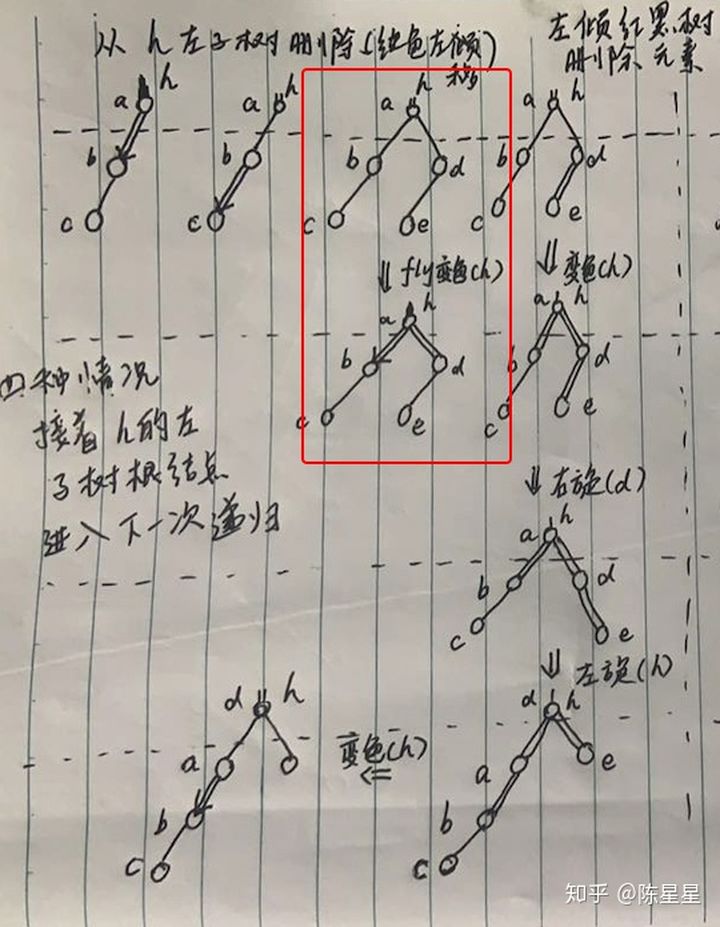 从 h 左子树删除(红色左倾
移)
左倾红黑树
删除元素
a h
b
c
a h
b
c
a h
b d
c e
a h
b d
c e
⇓ fly变色(h)
⇓ 变色(h)
a h
b d
c e
a h
b d
c e
四种情况
接着 h的左
子树根结点
进入下一次递归
⇓ 右旋(d)
a h
b d
c e
⇓ 左旋(h)
d h
a e
b
c
变色(h)
⇐
d h
a
b
c
知乎 @陈星星